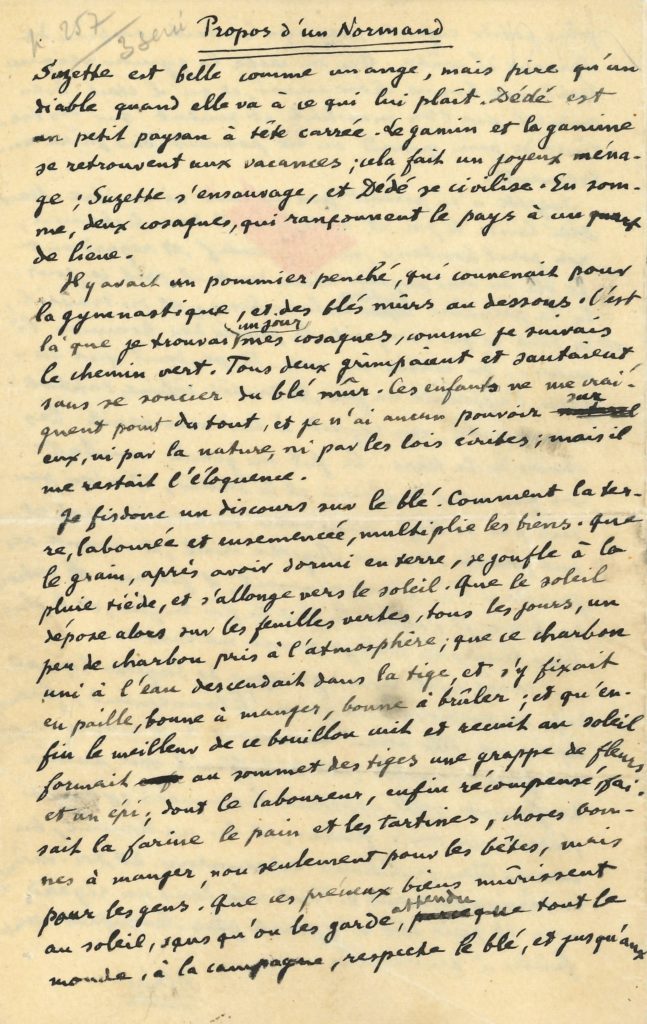 p. 257
3 série
Propos d'un Normand
Suzette est belle comme un ange, mais pire qu'un
diable quand elle va à ce qui lui plaît. Dédé est
un petit paysan à tête carrée. Le gamin et la gamine
se retrouvent aux vacances ; cela fait un joyeux ména-
ge ; Suzette s'ensauvage, et Dédé se civilise. En som-
me, deux cosaques, qui rançonnent le pays à un quart
de lieue.
Il y avait un pommier penché, qui convenait pour
la gymnastique, et des blés mûrs au dessous. C'est
un jour
là que je trouvai mes cosaques, comme je suivais
le chemin vert. Tous deux grimpaient et sautaient
sans se soucier du blé mûr. Ces enfants ne me crai-
gnent point du tout, et je n'ai aucun pouvoir sur
eux, ni par la nature, ni par les lois écrites ; mais il
me restait l'éloquence.
Je fis donc un discours sur le blé. Comment la ter-
re, labourée et ensemencée, multiplie les biens. Que
le grain, après avoir dormi en terre, se gonfle à la
pluie tiède, et s'allonge vers le soleil. Que le soleil
dépose alors sur les feuilles vertes, tous les jours, un
peu de charbon pris à l'atmosphère ; que ce charbon
uni à l'eau descendait dans la tige, et s'y fixait
en paille, bonne à manger, bonne à brûler ; et qu'en-
fin le meilleur de ce bouillon cuit et recuit au soleil
formait au sommet des tiges une grappe de fleurs
et un épi ; dont le laboureur, enfin récompensé, fai-
sait la farine le pain et les tartines, choses bon-
nes à manger, non seulement pour les bêtes, mais
pour les gens. Que ces précieux biens mûrissent
attendu
au soleil, sans qu'on les garde, parce que tout le
monde, à la campagne, respecte le blé, et jusqu'aux